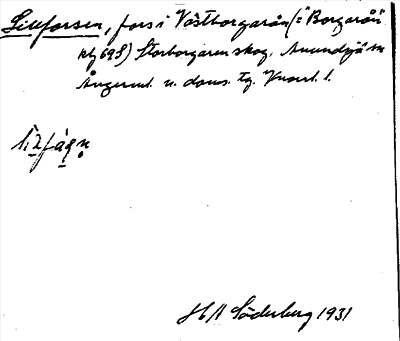 Lillforsen, fors i Västborgarån (= "Borgarån
kbg 698) Storborgaren skog. Anundsjö sn
Ångerml. n. doms. tg. Kvart. 1.
H A Söderberg 1931